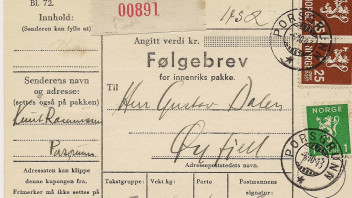 Bl. 72.
Innhold:
(Senderen kan fylle ut)
00891
1952
Angitt verdi kr.
Følgebrev
for innenriks pakke.
Senderens navn
og adresse:
(settes også på pakken)
Knut Rasmussen
Til
Herr Gustav Dalen
Øyfjell
Adressepoststedets navn.
Adressaten kan klippe
denne kupongen fra.
Frimerker må ikke settes på
Takstgruppe:
Vekt kg:
Porto
Postmannens
signatur:
PORSGRUNN
25
NORGE
25
NORGE
1
PORSGRUNN